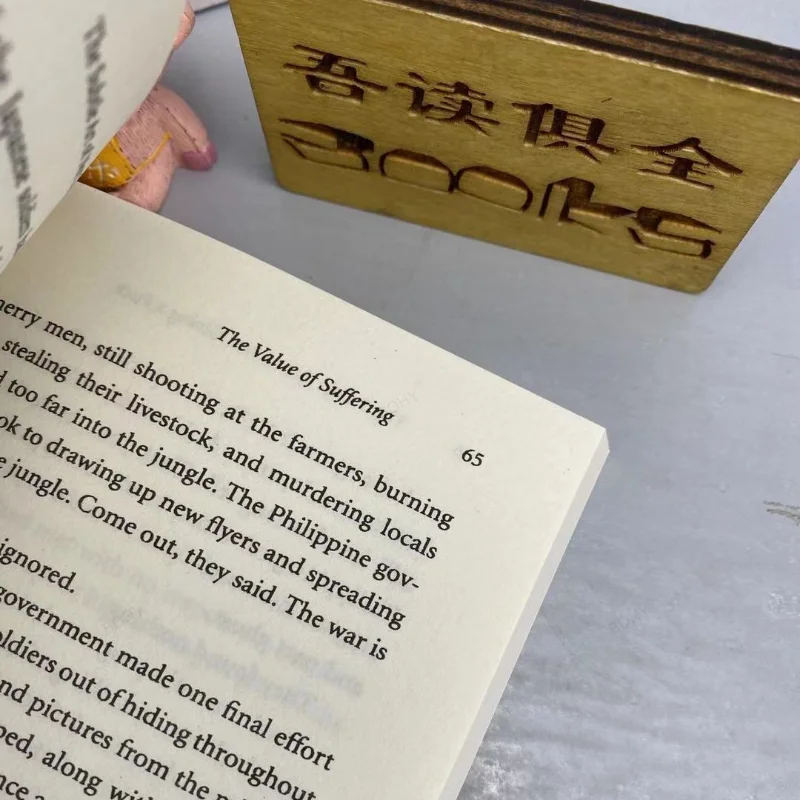 吾读俱全
BOOKS
The Value of Suffering
65
merry men, still shooting at the farmers, burning
stealing their livestock, and murdering locals
too far into the jungle. The Philippine gov-
to drawing up new flyers and spreading
jungle. Come out, they said. The war is
ignored.
government made one final effort
soldiers out of hiding throughout
and pictures from the
along with